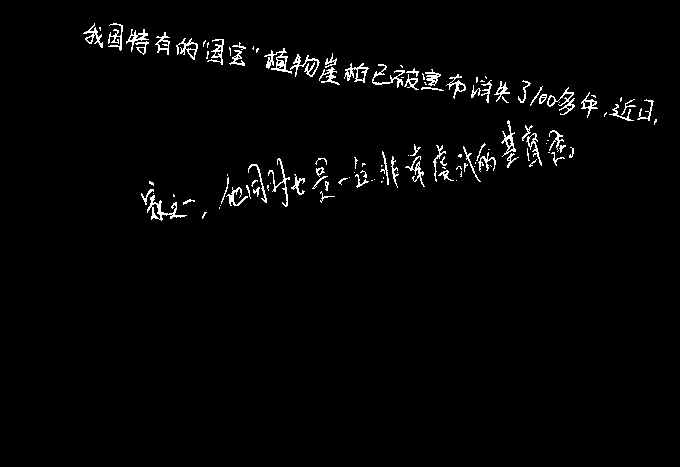 我国特有的“国宝”植物崖柏已被宣布消失了100多年,近日,
家之一,他同时也是一位非常虔诚的基督徒。